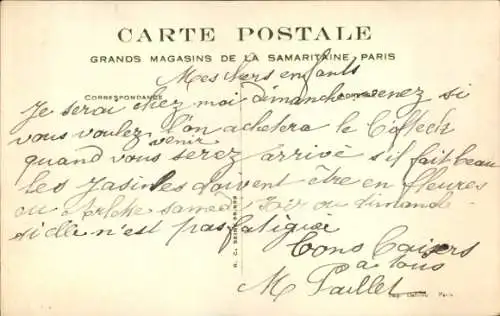 CARTE POSTALE
GRANDS MAGASINS DE LA SAMARITAINE PARIS
Mes chers enfants
CORRESPONDANCE
Je serai chez moi dimanche venez si
vous voulez l'on achetera le
venir
quand vous serez arrivé s'il fait beau
les doivent être en fleures
samedi soir ou dimanche
si elle n'est pas fatiguée
bons baisers
a tous
M Paillet